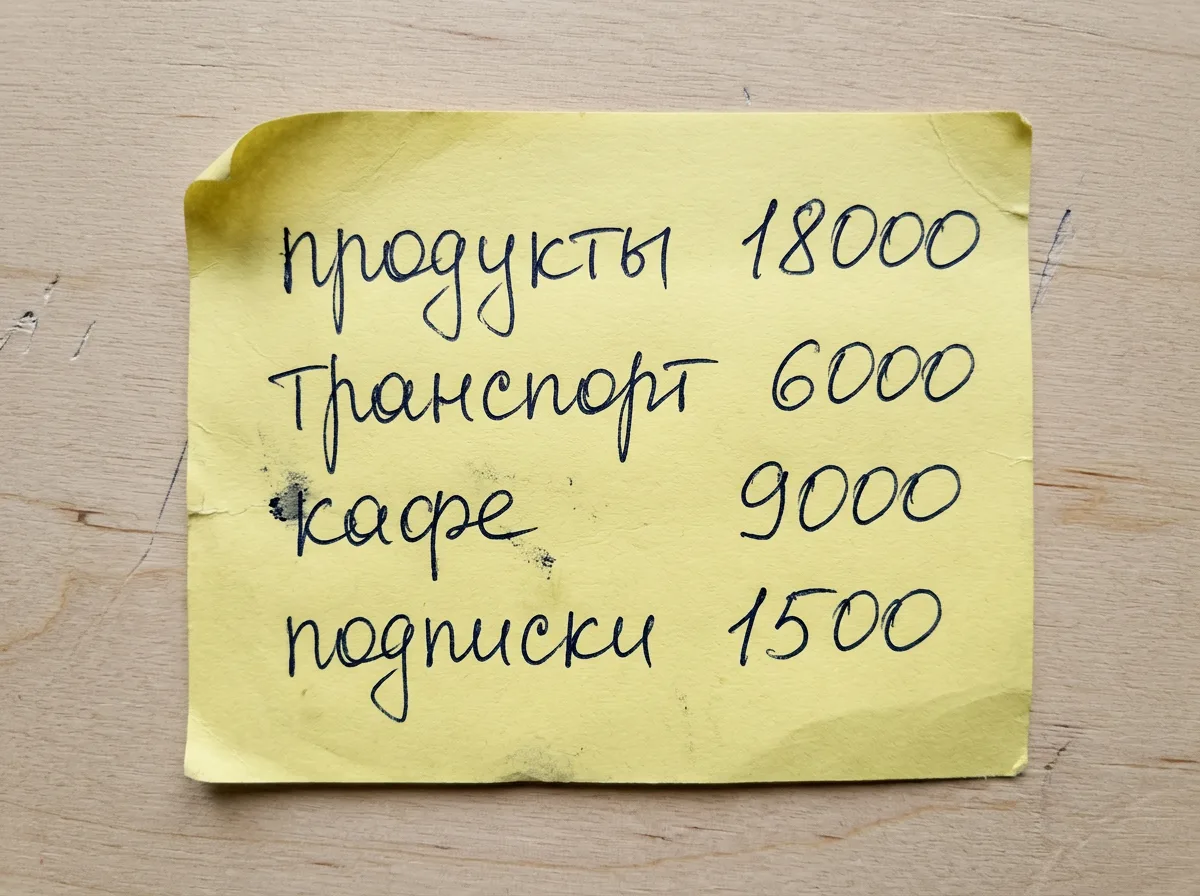 продукты 18000
транспорт 6000
кафе 9000
подписки 1500